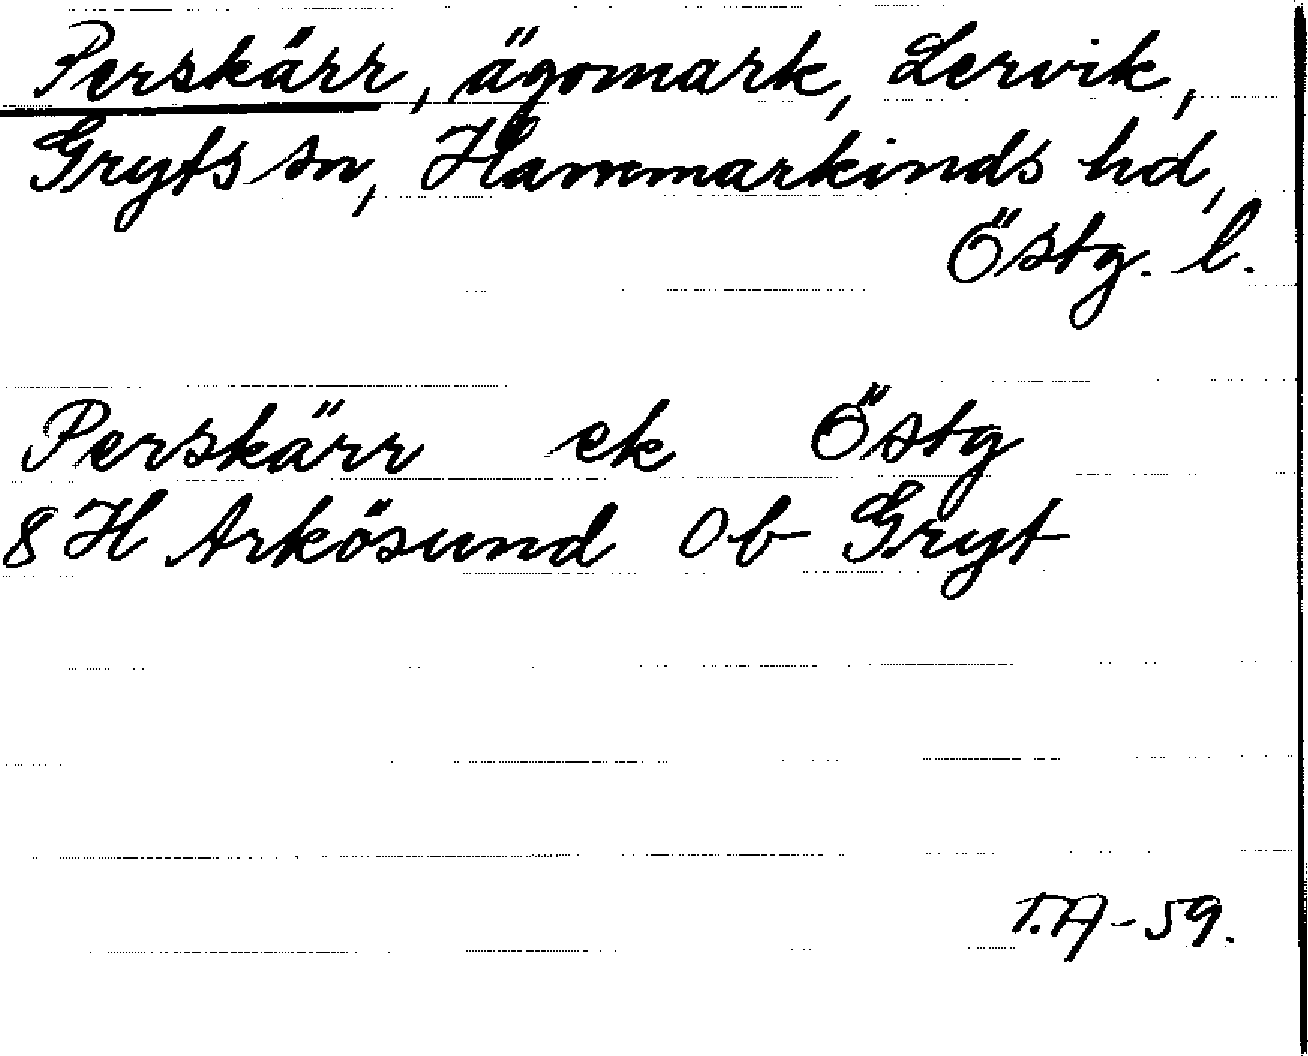 Perskärr, ägomark, Lervik,
Gryts sn, Hammarkinds hd,
Östg. l.
Perskärr ek Östg
8H Arkösund 0b Gryt
T.A-59.